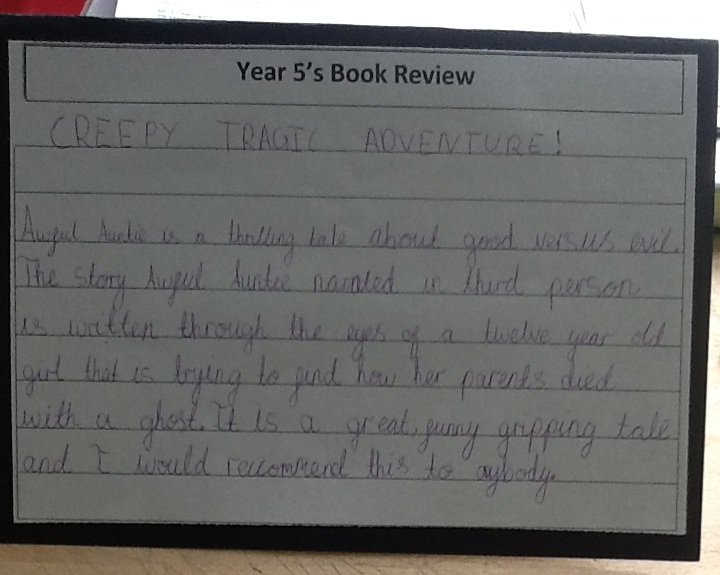 Year 5's Book Review
CREEPY TRAGIC ADVENTURE!
Awful Auntie is a thrilling tale about good versus evil.
The story Awful Auntie narrated in third person
is written through the eyes of a twelve year old
girl that is trying to find how her parents died
with a ghost. It is a great, funny gripping tale
and I would reccommend this to aybody.